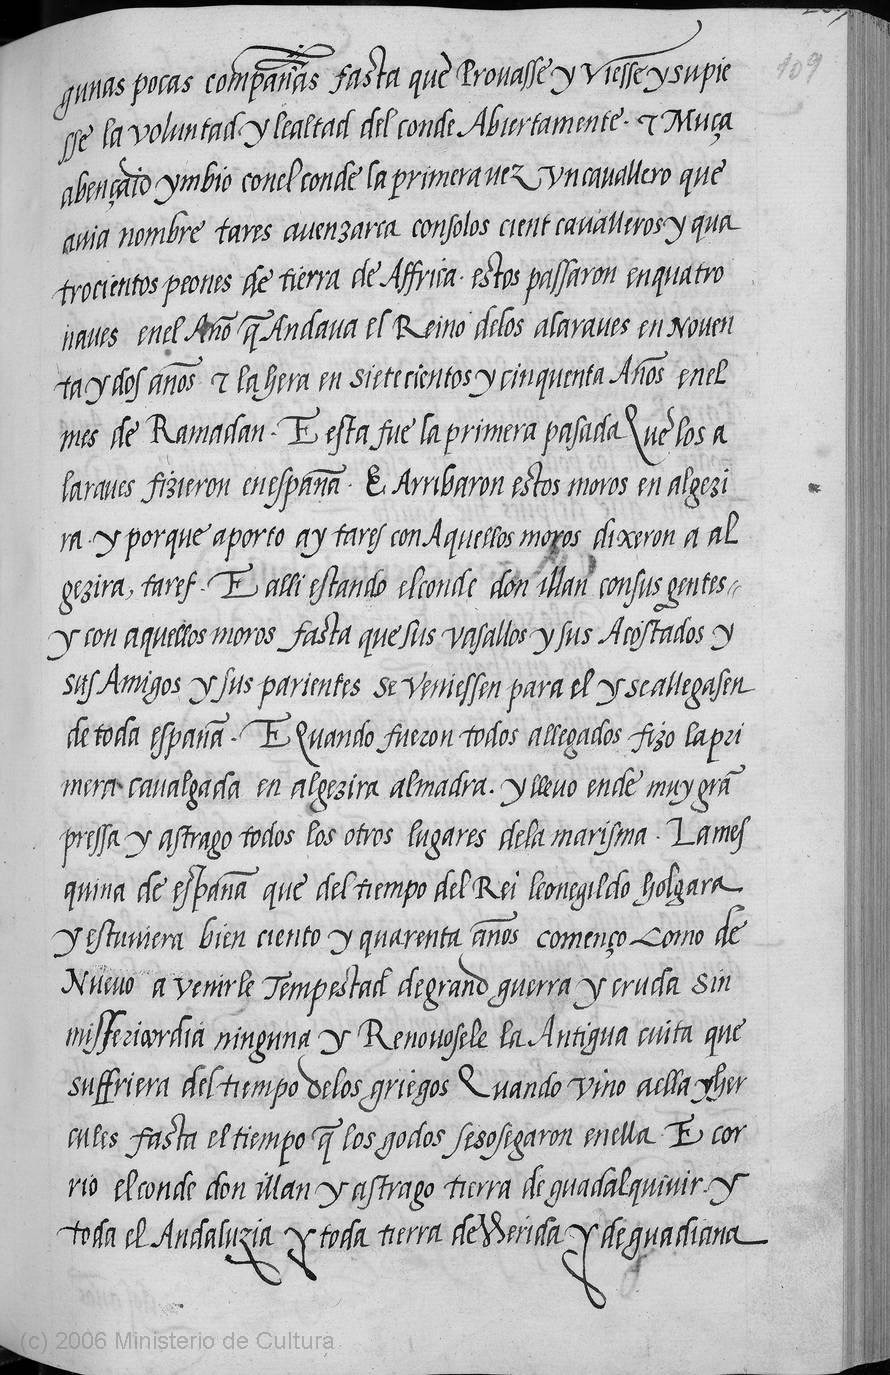 109
gunas pocas compañias fasta que Prouasse y Viesse y supie
sse la voluntad y lealtad del conde Abiertamente · ⁊ Muça
abençaid ymbio con el conde la primera vez Vn cauallero que
auia nombre tares auenzarca con solos cient caualleros y qua
trocientos peones de tierra de Affrica · estos passaron en quatro
naues en el Año q̃ Andaua el Reino delos alaraues en Noven
ta y dos años ⁊ la hera en siete cientos y cinquenta Años en el
mes de Ramadan · E esta fue la primera pasada Que los a
laraues fizieron en españa · E Arribaron estos moros en algezi
ra · y porque aporto ay tares con Aquellos moros dixeron a al
gezira, taref · E alli estando el conde don illan con sus gentes
y con aquellos moros fasta que sus vasallos y sus Acostados y
sus Amigos y sus parientes se veniessen para el y se allegasen
de toda españa · E Quando fueron todos allegados fizo la pri
mera caualgada en algezira almadra. y lleuo ende muy grã
pressa y astrago todos los otros lugares dela marisma · La mes
quina de españa que del tiempo del Rei leonegildo holgara
y estuuiera bien ciento y quarenta años començo Como de
Nueuo a venirle Tempestad de grand guerra y cruda sin
missericordia ninguna y Renouosele la Antigua cuita que
suffriera del tiempo delos griegos Quando vino a ella yher
cules fasta el tiempo q̃ los godos sesosegaron en ella · E cor
rio el conde don illan y astrago tierra de guadalquiuir · y
toda el Andaluzia y toda tierra de Merida y de guadiana
(c) 2006 Ministerio de Cultura